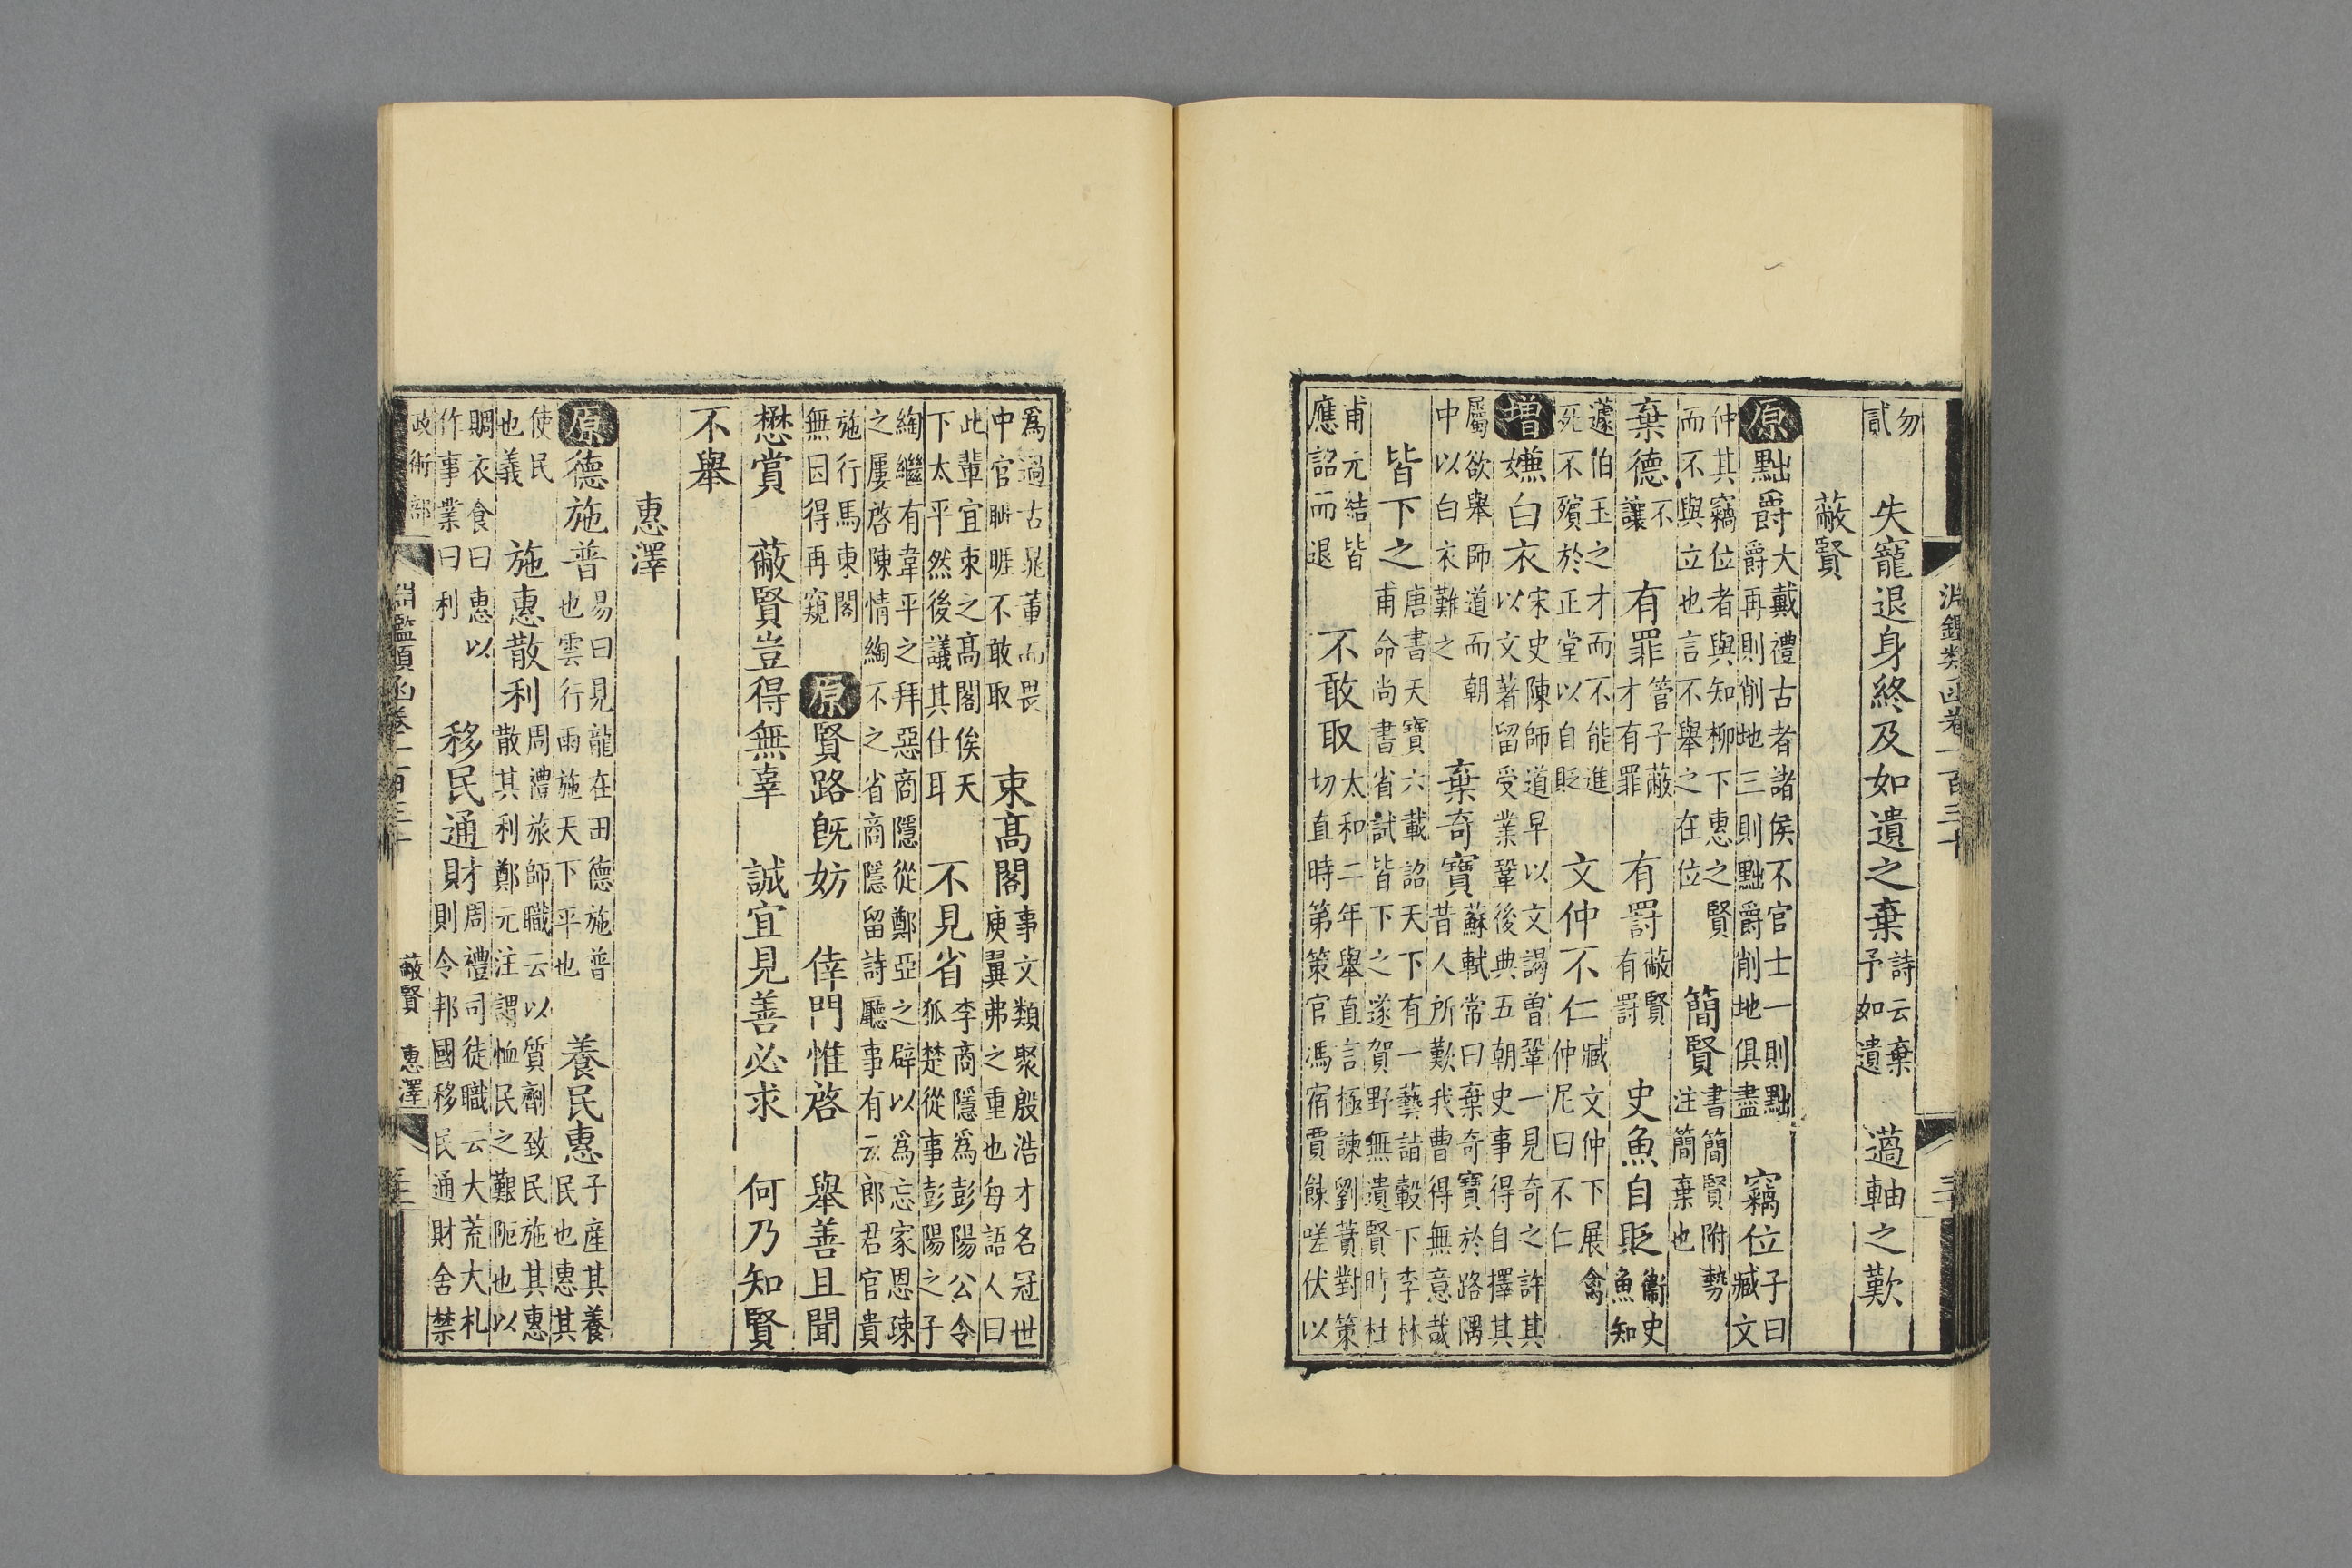 淵鑑類函卷一百三十
勿貳 失寵退身終及如遺之棄 詩云棄予如遺 薖軸之歎
蔽賢
原黜爵 大戴禮古者諸侯不官士一則黜爵再則削地三則黜爵削地俱盡 竊位 子曰臧文
仲其竊位者與知柳下惠之賢而不與立也言不舉之在位 簡賢 書簡賢附勢注簡棄也
棄德 不讓 有罪 管子蔽才有罪 有罰 蔽賢有罰 史魚自貶 衞史魚知
蘧伯玉之才而不能進死不殯於正堂以自貶 文仲不仁 臧文仲下展禽仲尼曰不仁
增嫌白衣 宋史陳師道早以文謁曾鞏一見奇之許其以文著留受業鞏後典五朝史事得自擇其
屬欲舉師道而朝中以白衣難之 棄奇寶 蘇軾常曰棄奇寶於路隅昔人所歎我曹得無意哉
皆下之 唐書天寶六載詔天下有一藝詣轂下李林甫命尚書省試皆下之遂賀野無遺賢時杜
甫元結皆應詔而退 不敢取 太和二年舉直言極諫劉蕡對策切直時第策官馮宿賈餗嗟伏以
爲過古晁董而畏中官眦睚不敢取 束高閣 事文類聚殷浩才名冠世庾翼弗之重也每語人曰
此輩宜束之高閣俟天下太平然後議其仕耳 不見省 李商隱爲彭陽公令狐楚從事彭陽之子
綯繼有韋平之拜惡商隱從鄭亞之辟以爲忘家恩疎之屢啓陳情綯不之省商隱留詩廳事有云郎君官貴
施行馬東閣無因得再窺 原賢路旣妨 倖門惟啓 舉善且聞
懋賞 蔽賢豈得無辜 誠宜見善必求 何乃知賢
不舉
惠澤
原德施普 易曰見龍在田德施普也雲行雨施天下平也 養民惠 子產其養民也惠其
使民也義 施惠散利 周禮旅師職云以質劑致民施其惠散其利鄭元注謂恤民之艱阨也以
賙衣食曰惠以作事業曰利 移民通財 周禮司徒職云大荒大札則令邦國移民通財舍禁
政術部 淵鑑類函卷一百三十 蔽賢 惠澤